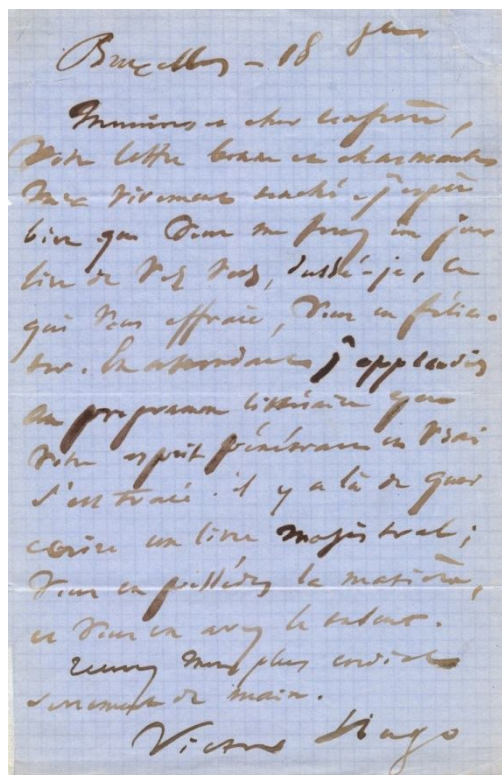 Bruxelles – 18 9bre
cher confrère,
Votre lettre bonne et charmante
m'a vivement touché. j'espère
bien que vous me ferez un jour
lire de vos vers, dussé-je, ce
qui vous effraie, vous en félici-
ter. En attendant j'applaudis
au programme littéraire que
votre esprit pénétrant et vrai
s'est tracé. il y a là de quoi
écrire un livre magistral;
vous en possédez la matière,
et vous en avez le talent.
Recevez mon plus cordial
serrement de main.
Victor Hugo